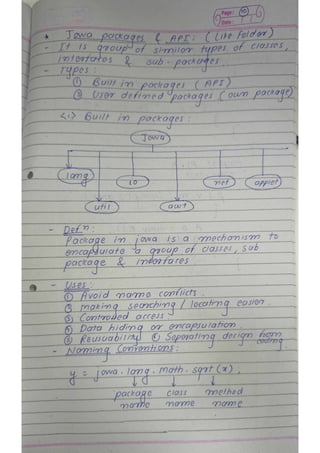 Page: 10
Date:
* Java packages & API: (Like folder)
- It is group of similar types of classes,
interfaces & sub-packages.
- Types:
① Built in packages (API)
② User defined packages (own package)
<1> Built in packages:
Java
lang
io
net
applet
util
awt
- Defn:
Package in java is a mechanism to
encapsulate a group of classes, sub
package & interfaces
- Uses:
① Avoid name conflicts.
② making searching / locating easier.
③ Controlled access
④ Data hiding or encapsulation
⑤ Reusuability ⑥ Seperating design from
coding
- Naming Conventions:
y = java. lang. math. sqrt (x);
↓ ↓ ↓
package class method
name name name